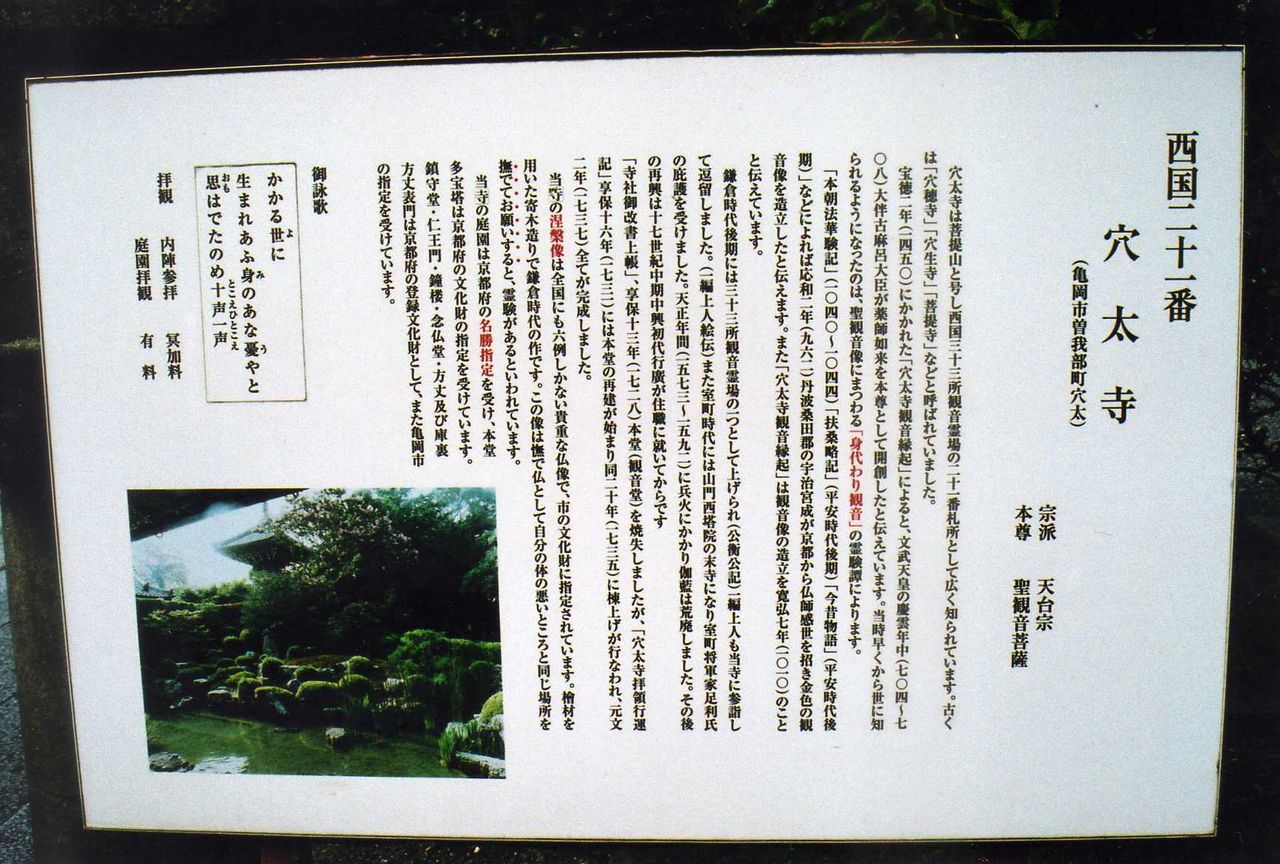 西国二十一番
穴太寺
(亀岡市曽我部町穴太)
宗派 天台宗
本尊 聖観音菩薩
穴太寺は菩提山と号し西国三十三所観音霊場の二十一番札所として広く知られています。古く
は「穴穂寺」「穴生寺」「菩提寺」などと呼ばれていました。
宝徳二年(一四五〇)にかかれた「穴太寺観音縁起」によると、文武天皇の慶雲年中(七〇四～七
〇八)大伴古麻呂大臣が薬師如来を本尊として開創したと伝えています。当時早くから世に知
られるようになったのは、聖観音像にまつわる「身代わり観音」の霊験譚によります。
「本朝法華験記」(一〇四〇～一〇四四)「扶桑略記」(平安時代後期)「今昔物語」(平安時代後
期)」などによれば応和二年(九六二)丹波桑田郡の宇治宮成が京都から仏師感世を招き金色の観
音像を造立したと伝えます。また「穴太寺観音縁起」は観音像の造立を寛弘七年(一〇一〇)のこと
と伝えています。
鎌倉時代後期には三十三所観音霊場の一つとして上げられ(公衡公記)一編上人も当寺に参詣し
て逗留しました。(一編上人絵伝)また室町時代には山門西塔院の末寺になり室町将軍家足利氏
の庇護を受けました。天正年間(一五七三～一五九二)に兵火にかかり伽藍は荒廃しました。その後
の再興は十七世紀中期中興初代行廣が住職に就いてからです
「寺社御改書上帳」、享保十三年(一七二八)本堂(観音堂)を焼失しましたが、「穴太寺拝領行運
記」享保十六年(一七三一)には本堂の再建が始まり同二十年(一七三五)に棟上げが行なわれ、元文
二年(一七三七)全てが完成しました。
当寺の涅槃像は全国にも六例しかない貴重な仏像で、市の文化財に指定されています。檜材を
用いた寄木造りで鎌倉時代の作です。この像は撫で仏として自分の体の悪いところと同じ場所を
撫でてお願いすると、霊験があるといわれています。
当寺の庭園は京都府の名勝指定を受け、本堂
多宝塔は京都府の文化財の指定を受けています。
鎮守堂・仁王門・鐘楼・念仏堂・方丈及び庫裏
方丈表門は京都府の登録文化財として、また亀岡市
の指定を受けています。
御詠歌
かかる世に
生まれあふ身のあな憂やと
思はでたのめ十声一声
拝観 内陣参拝 冥加料
庭園拝観 有料